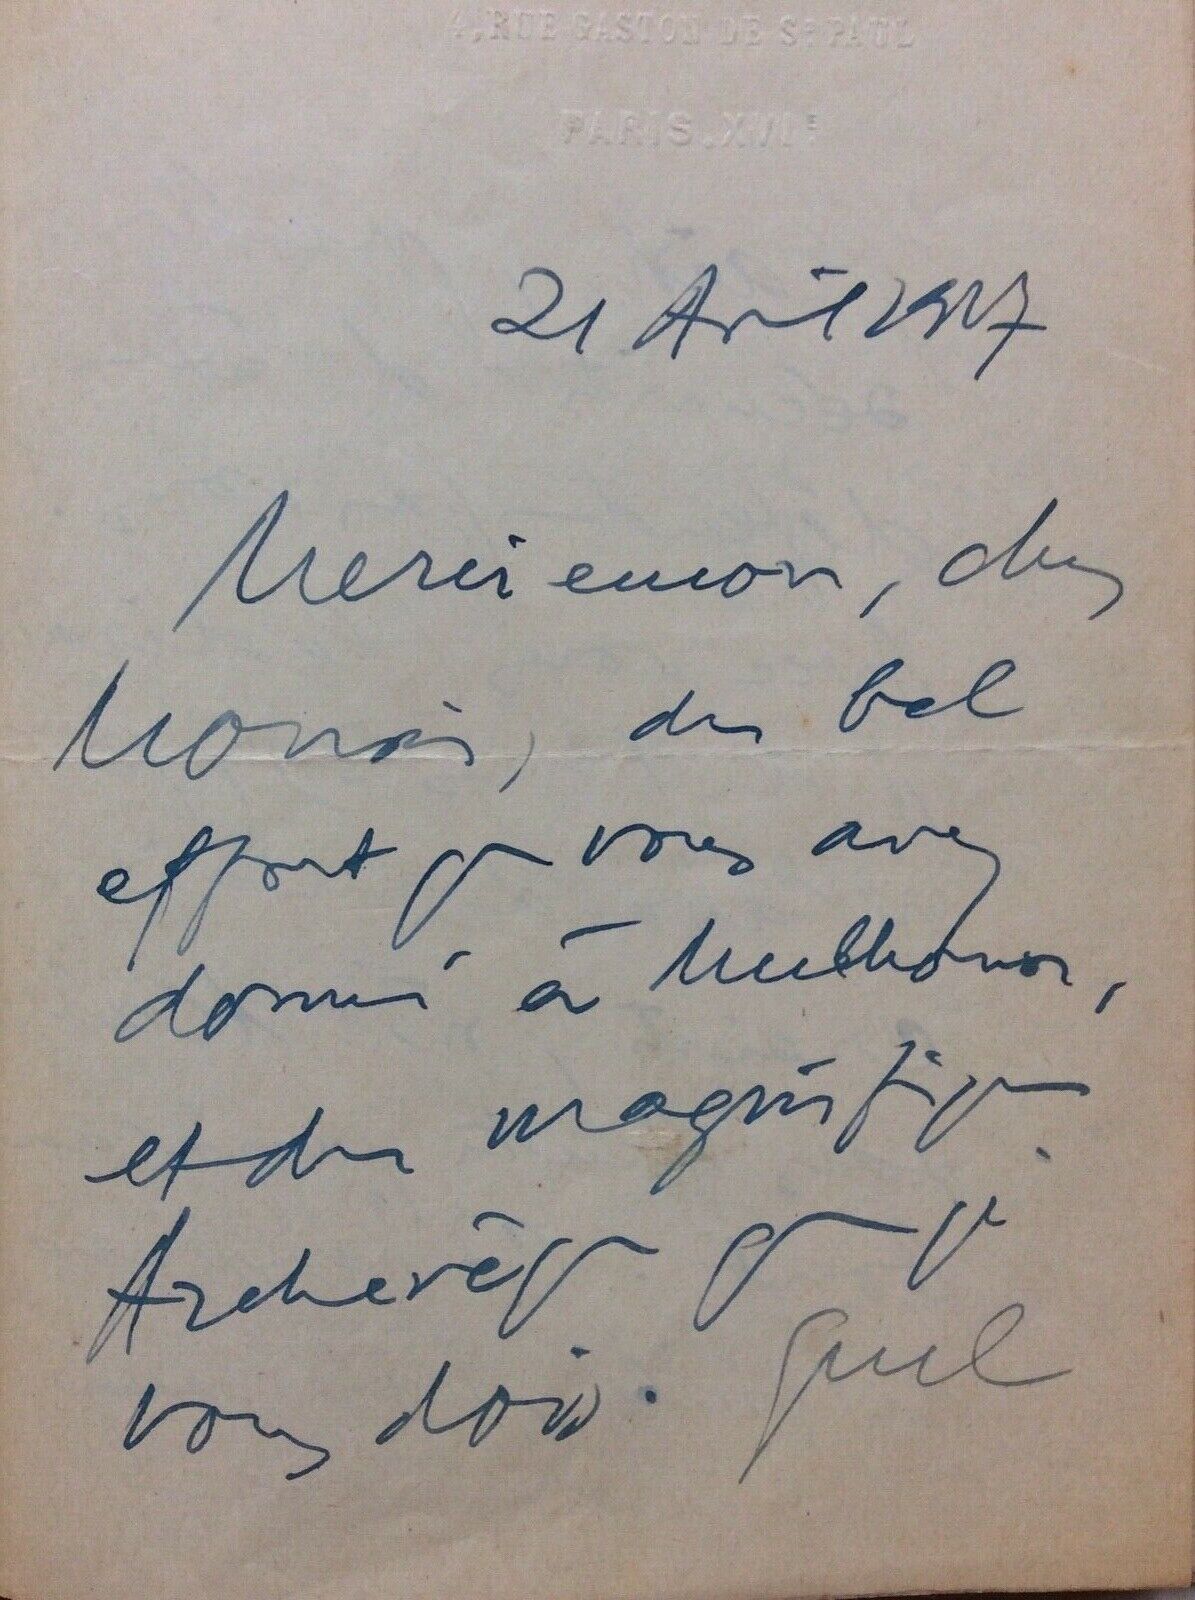 4, RUE GASTON DE Sᵗ PAUL
PARIS.XVIᴱ
21 Avril
Merci encore, cher
, du bel
effort que vous avez
donné à Mulhouse,
et du magnifique
Archevêque que je
vous dois. Quel